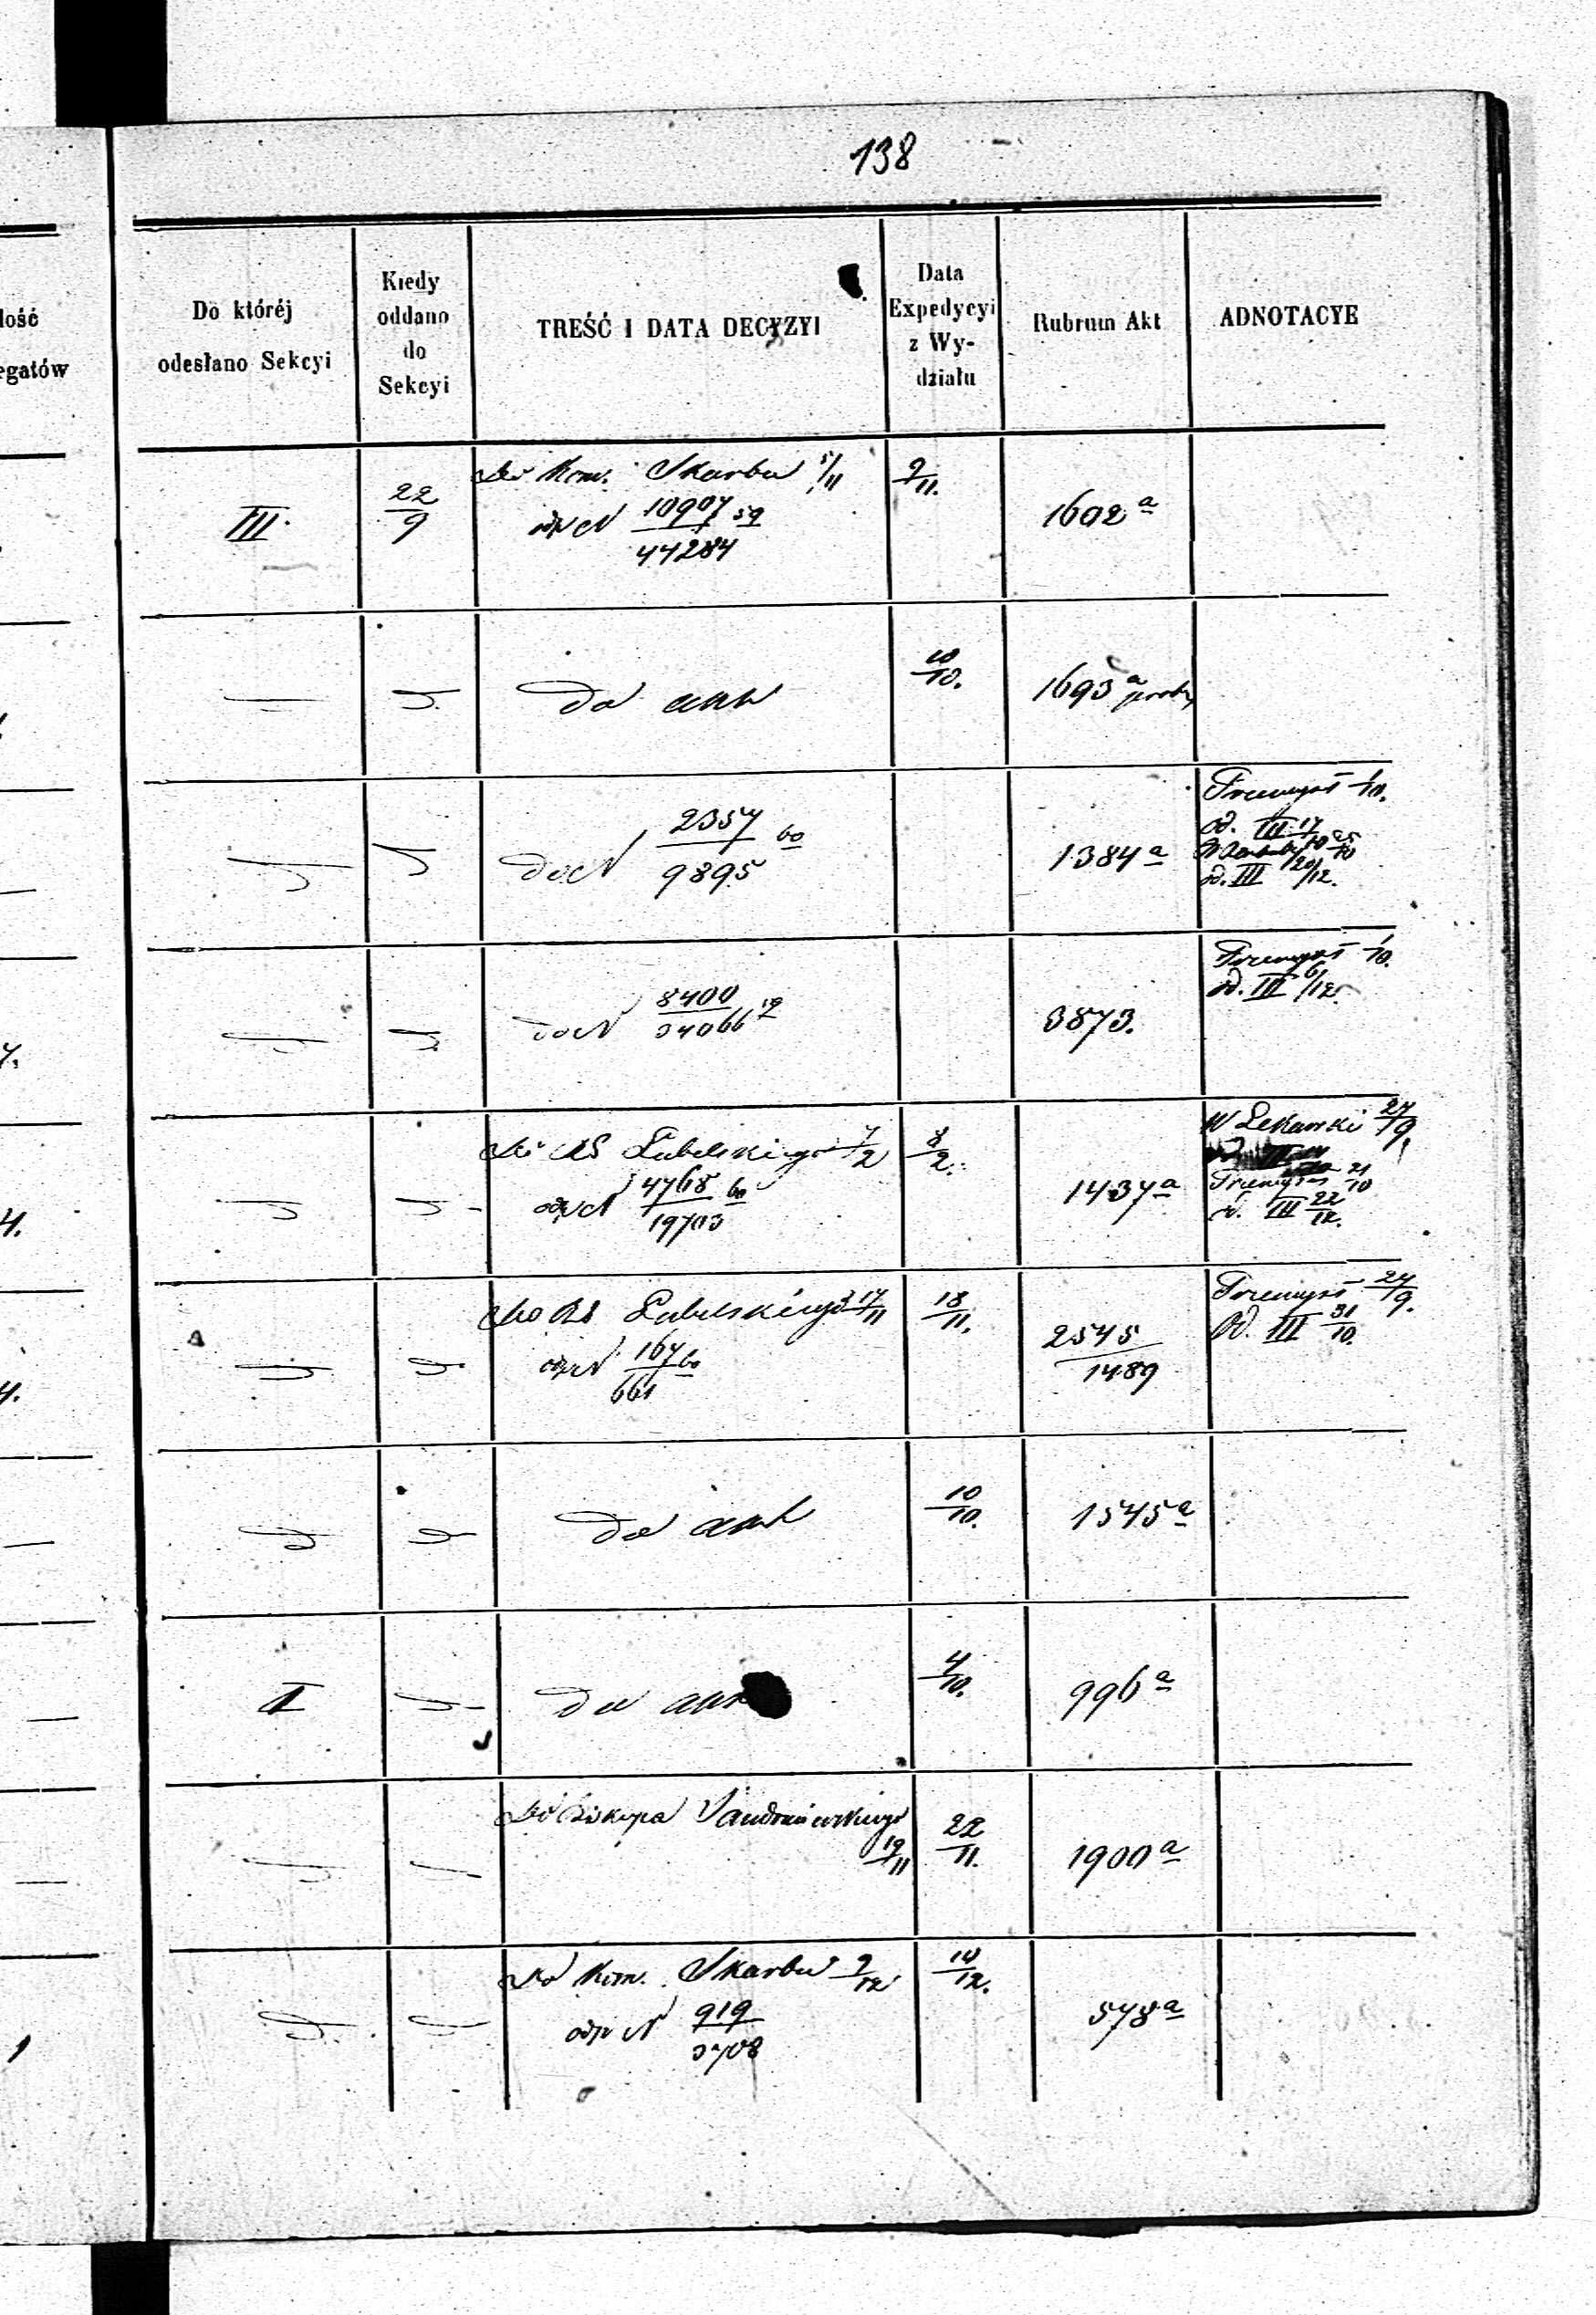 138
Do któréj
odesłano Sekcyi
Kiedy
oddano
do
Sekcyi
TREŚĆ I DATA DECYZYI
Data
Expedycyi
z Wy-
działu
Rubrum Akt
ADNOTACYE
III.
22/9
Do Kom. Skarbu 5/11
odp N 10907/44284 59
9/11.
1602 a
do akt
10/10.
1693 a
do N 2357/9895 60
1384 a
Przemysł 1/10.
od. III 17/10
od. III 20/12.
do N 8400/34066 19
3873.
Przemysł 1/10.
od. III 6/12.
Do RS Lubelskiego 7/2
odp N 4768/19703 60
8/2.
1437 a
W Lekarski 27/9.
Przemysł 21/10
od. III 22/12.
Do RS Lubelskiego 17/11
odp N 167/661 60
18/11.
2545/1489
Przemysł 27/9.
Od. III 31/10.
do akt
10/10.
1545 a
I
do akt
4/10.
996 a
Do Biskupa Sandomierskiego
19/11
22/11.
1900 a
Do Kom. Skarbu 9/12
odp N 919/3708
10/12.
578 a
łość
egatów